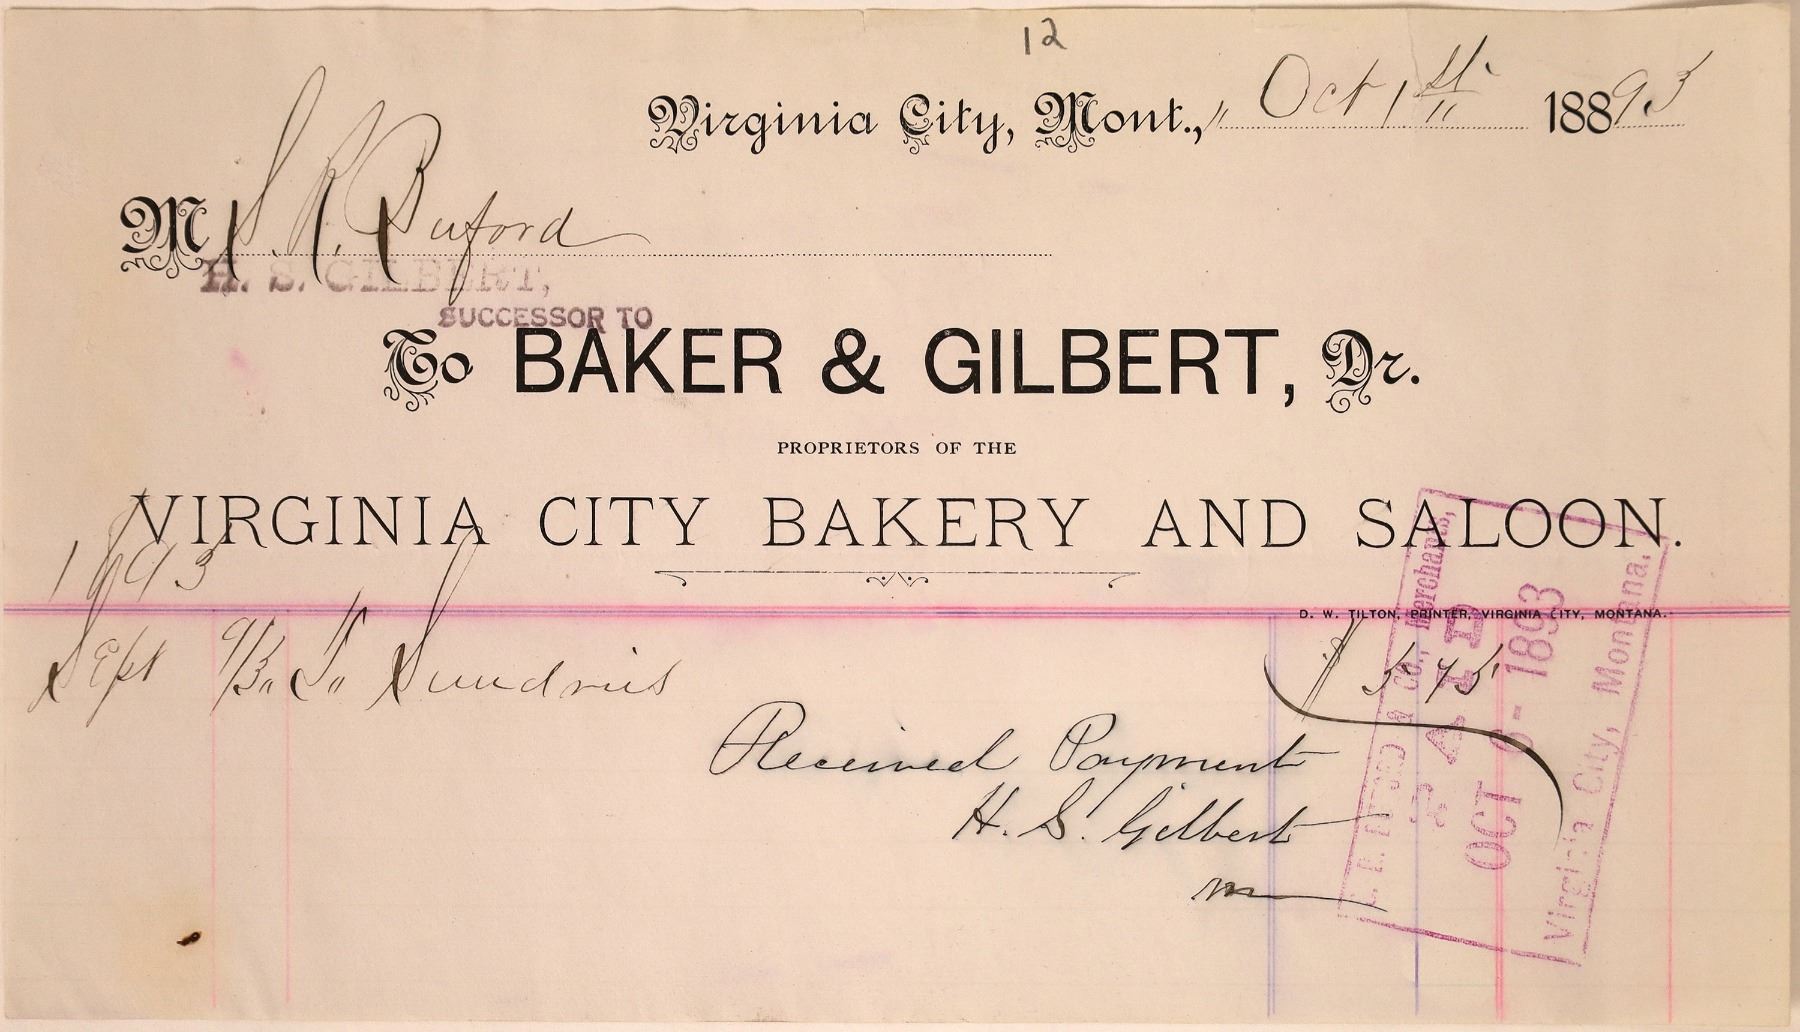 12
Virginia City, Mont., Oct 1st 18893
M S. R. Buford
H. S. GILBERT,
SUCCESSOR TO
To BAKER & GILBERT, Dr.
PROPRIETORS OF THE
VIRGINIA CITY BAKERY AND SALOON.
D. W. TILTON, PRINTER, VIRGINIA CITY, MONTANA.
1893
Sept To Sundries $ 5 75
Received Payment
H. S. Gilbert
BUFORD & CO., Merchants,
PAID
OCT 6- 1893
Virginia City, Montana.